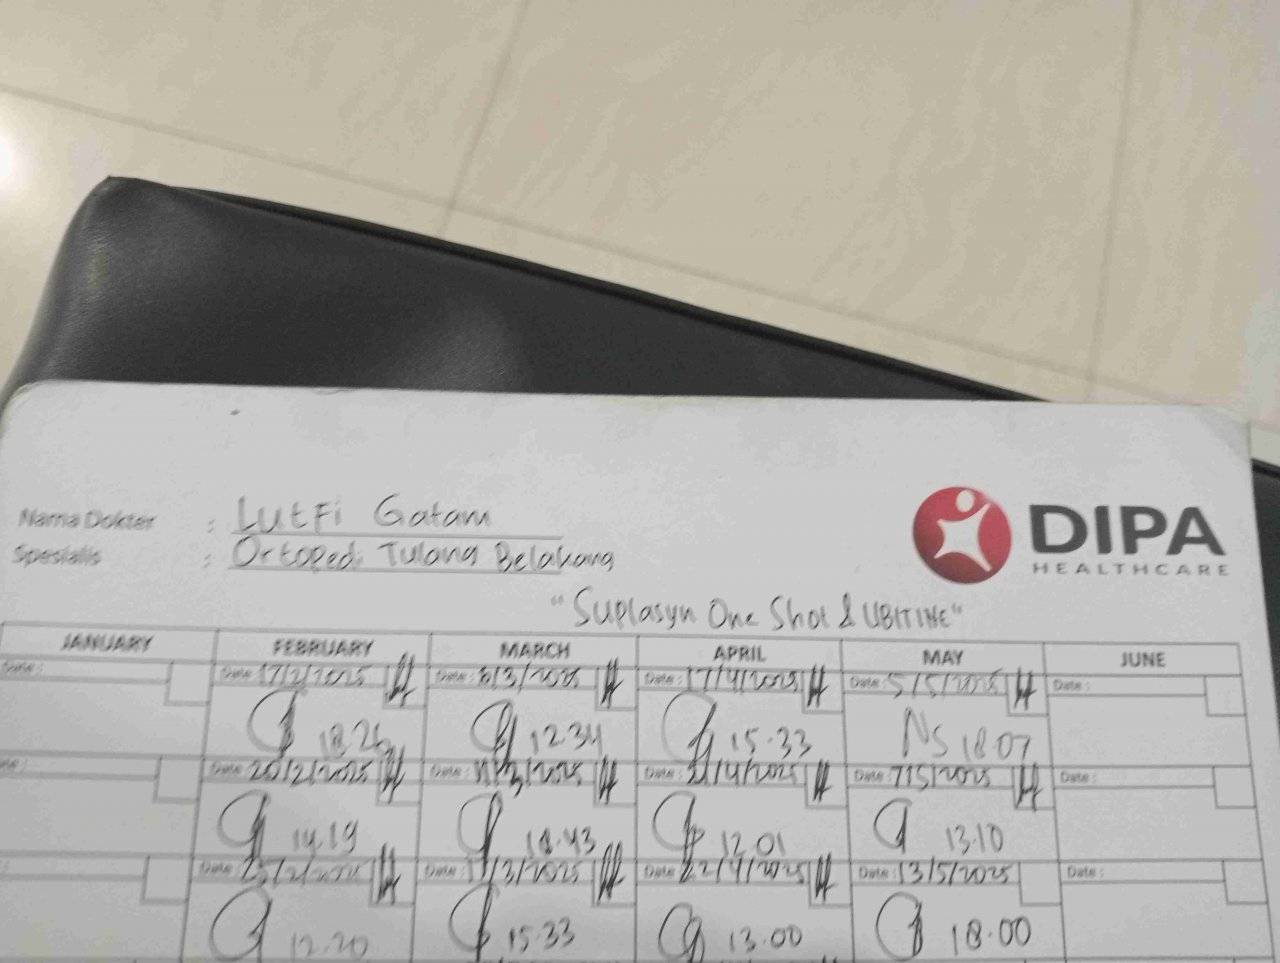 Nama Dokter : Lutfi Gatam
Spesialis : Ortopedi Tulang Belakang
DIPA
HEALTHCARE
"Suplasyn One Shot & UBITINE"
JANUARY FEBRUARY MARCH APRIL MAY JUNE
Date : Date : 17/2/2025 Date : 8/3/2025 Date : 17/4/2025 Date : 5/5/2025 Date :
18.26 12.34 15.33 NS 18.07
Date : 20/2/2025 Date : 11/3/2025 Date : 21/4/2025 Date : 7/5/2025 Date :
14.19 18.43 12.01 13.10
Date : Date : Date : 22/4/2025 Date : 13/5/2025 Date :
12.20 15.33 13.00 18.00